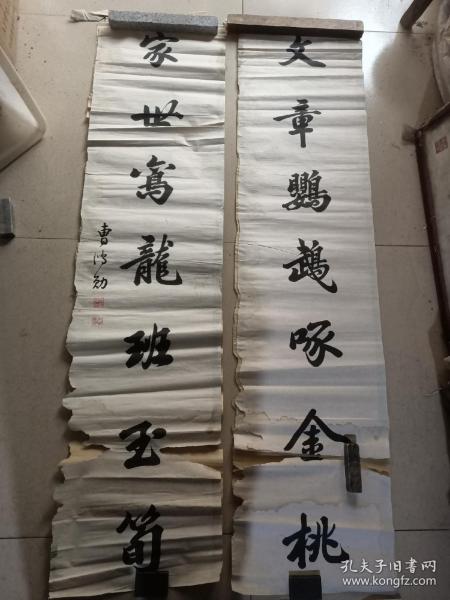 文章鸚鵡啄金桃
家世鴐龍班玉筍
曹鴻勛
孔夫子旧书网
www.kongfz.com